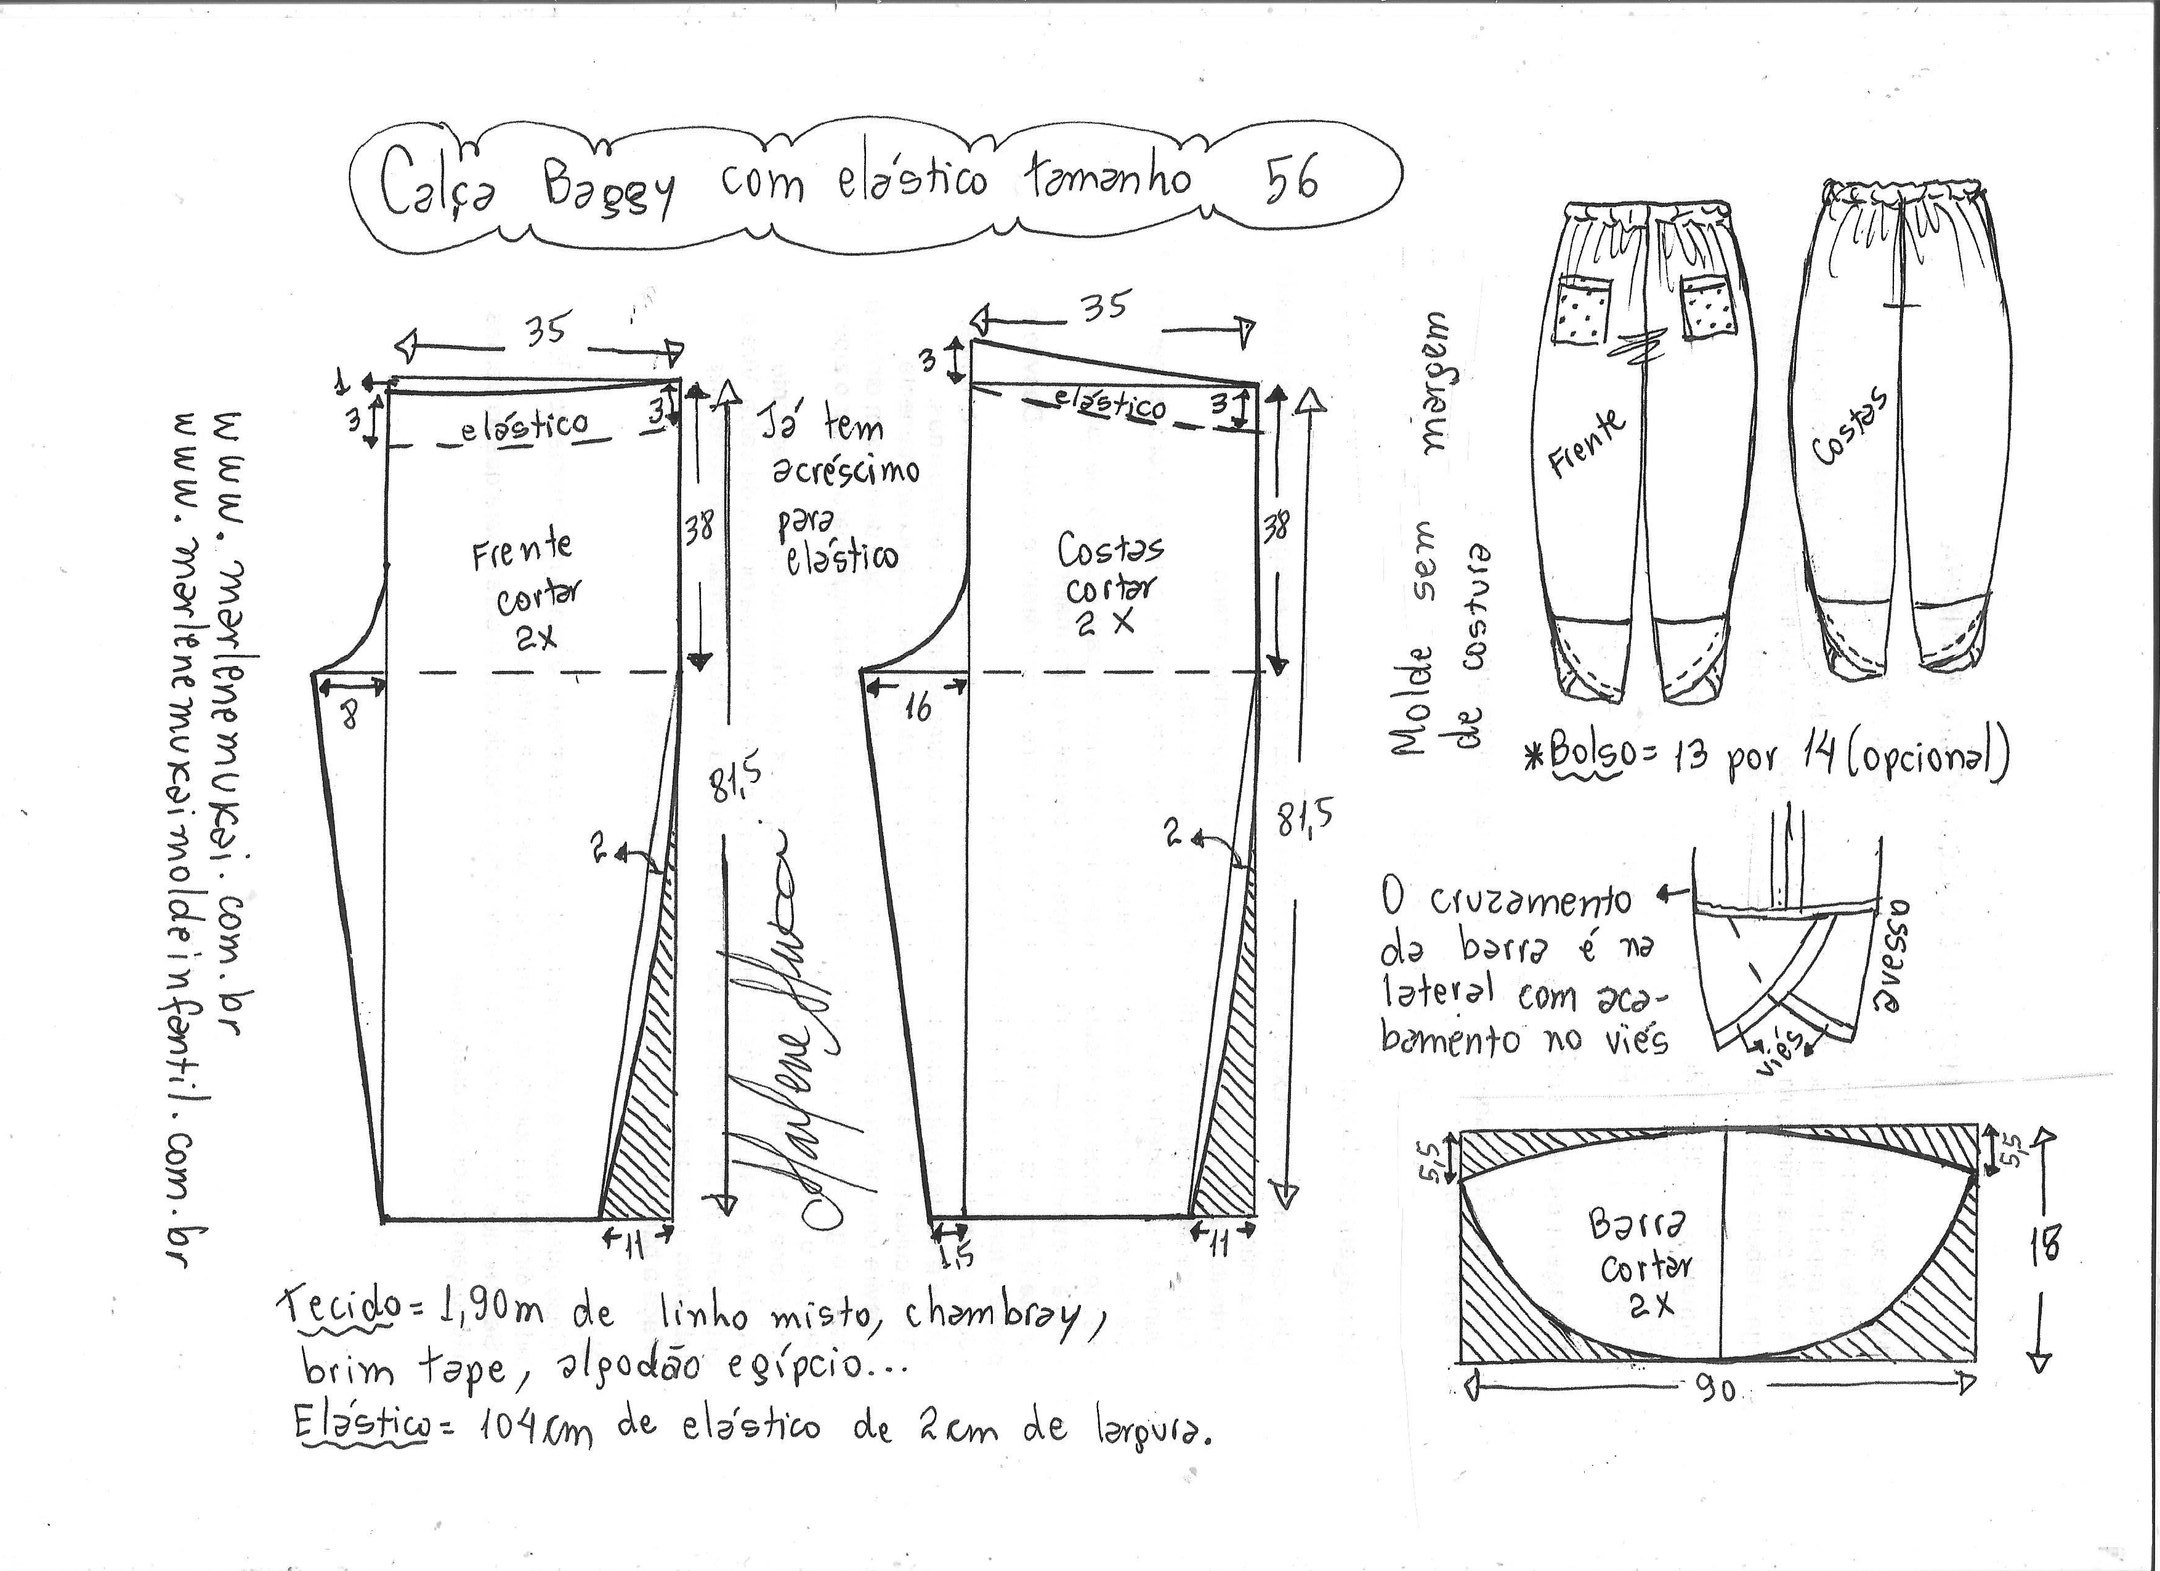 Calça Baggy com elástico tamanho 56
35
1
3
elástico
3
Frente
cortar
2x
38
8
81,5
2
11
Já tem
acréscimo
para
elástico
35
3
elástico
3
Costas
cortar
2 X
38
16
81,5
2
1,5
11
Marlene Mukai
www.marlenemukai.com.br
www.marlenemukaimoldeinfantil.com.br
Molde sem margem
de costura
Frente
Costas
*Bolso= 13 por 14 (opcional)
O cruzamento
da barra é na
lateral com aca-
bamento no viés
avesso
viés
5,5
5,5
Barra
cortar
2X
18
90
Tecido= 1,90m de linho misto, chambray,
brim tape, algodão egípcio...
Elástico= 104cm de elástico de 2cm de largura.